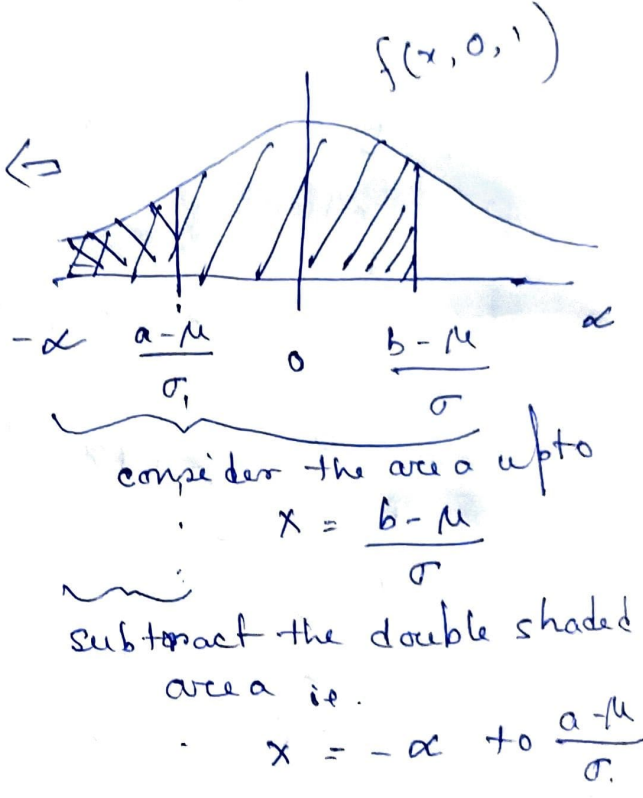 f(x, 0, 1)
⇐
-∝ a-μ/σ 0 b-μ/σ ∝
consider the area upto
x = b-μ/σ
subtract the double shaded
area ie.
x = -∝ to a-μ/σ.